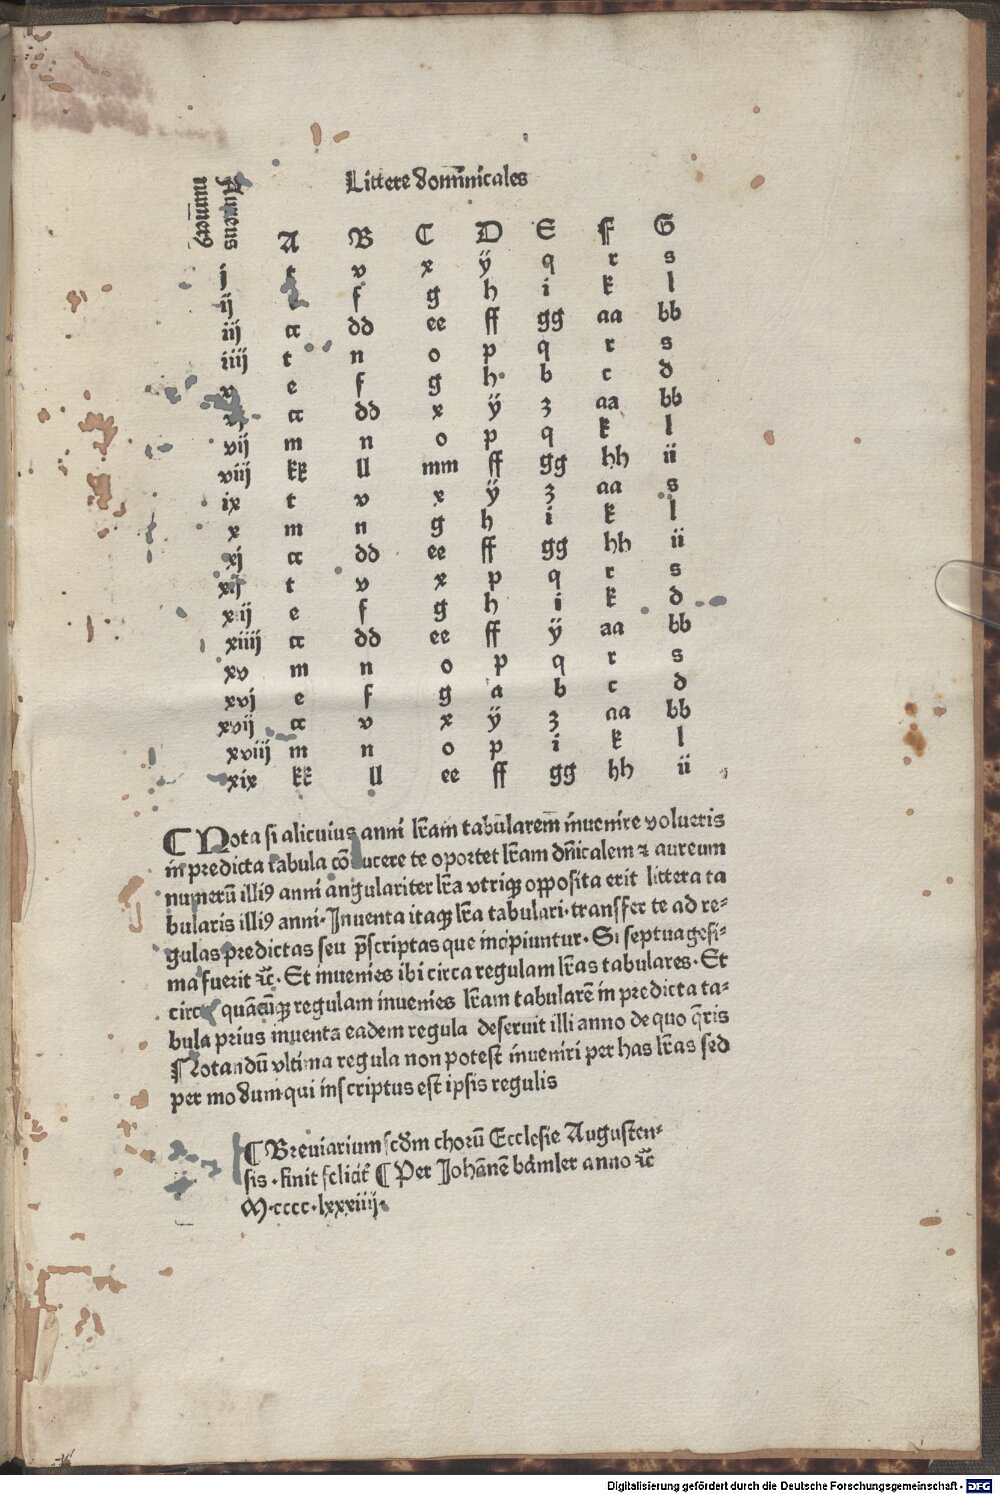 Littere domīnicales
Aureus
numerꝰ
A B C D E F G
j t v x ÿ q r s
ij f g h i k l
iij cc dd ee ff gg aa bb
iiij t n o p q r s
v e f g h b c d
cc dd x ÿ z aa bb
vij m n o p q k l
viij kk ll mm ff gg hh ii
ix t v x ÿ z aa s
x m n g h i k l
xj cc dd ee ff gg hh ii
xij t v x p q r s
xiij e f g h i k d
xiiij cc dd ee ff ÿ aa bb
xv m n o p q r s
xvj e f g a b c d
xvij cc v x ÿ z aa bb
xviij m n o p i k l
xix kk ll ee ff gg hh ii
¶ Nota si alicuius anni lr̄am tabularem invenire volueris
in predicta tabula cōducere te oportet lr̄am dn̄icalem ⁊ aureum
numerū illiꝰ anni angulariter lr̄a vtriqꝫ opposita erit littera ta
bularis illiꝰ anni · Inuenta itaqꝫ lr̄a tabulari · transfer te ad re⸗
gulas predictas seu p̄scriptas que incipiuntur · Si septuagesi⸗
ma fuerit ⁊c̄ · Et inuenies ibi circa regulam lr̄as tabulares · Et
circa quācūqꝫ regulam inuenies lr̄am tabularē in predicta ta⸗
bula prius inuenta eadem regula deseruit illi anno de quo q̄ris
¶Notandū vltima regula non potest inveniri per has lr̄as sed
per modum qui inscriptus est ipsis regulis
¶ Breuiarium scd̄m chorū Ecclesie Augusten⸗
sis · finit felicit̄ ¶ Per Johānē bämler anno ⁊c̄
M·cccc·lxxxiiij·
Digitalisierung gefördert durch die Deutsche Forschungsgemeinschaft - DFG